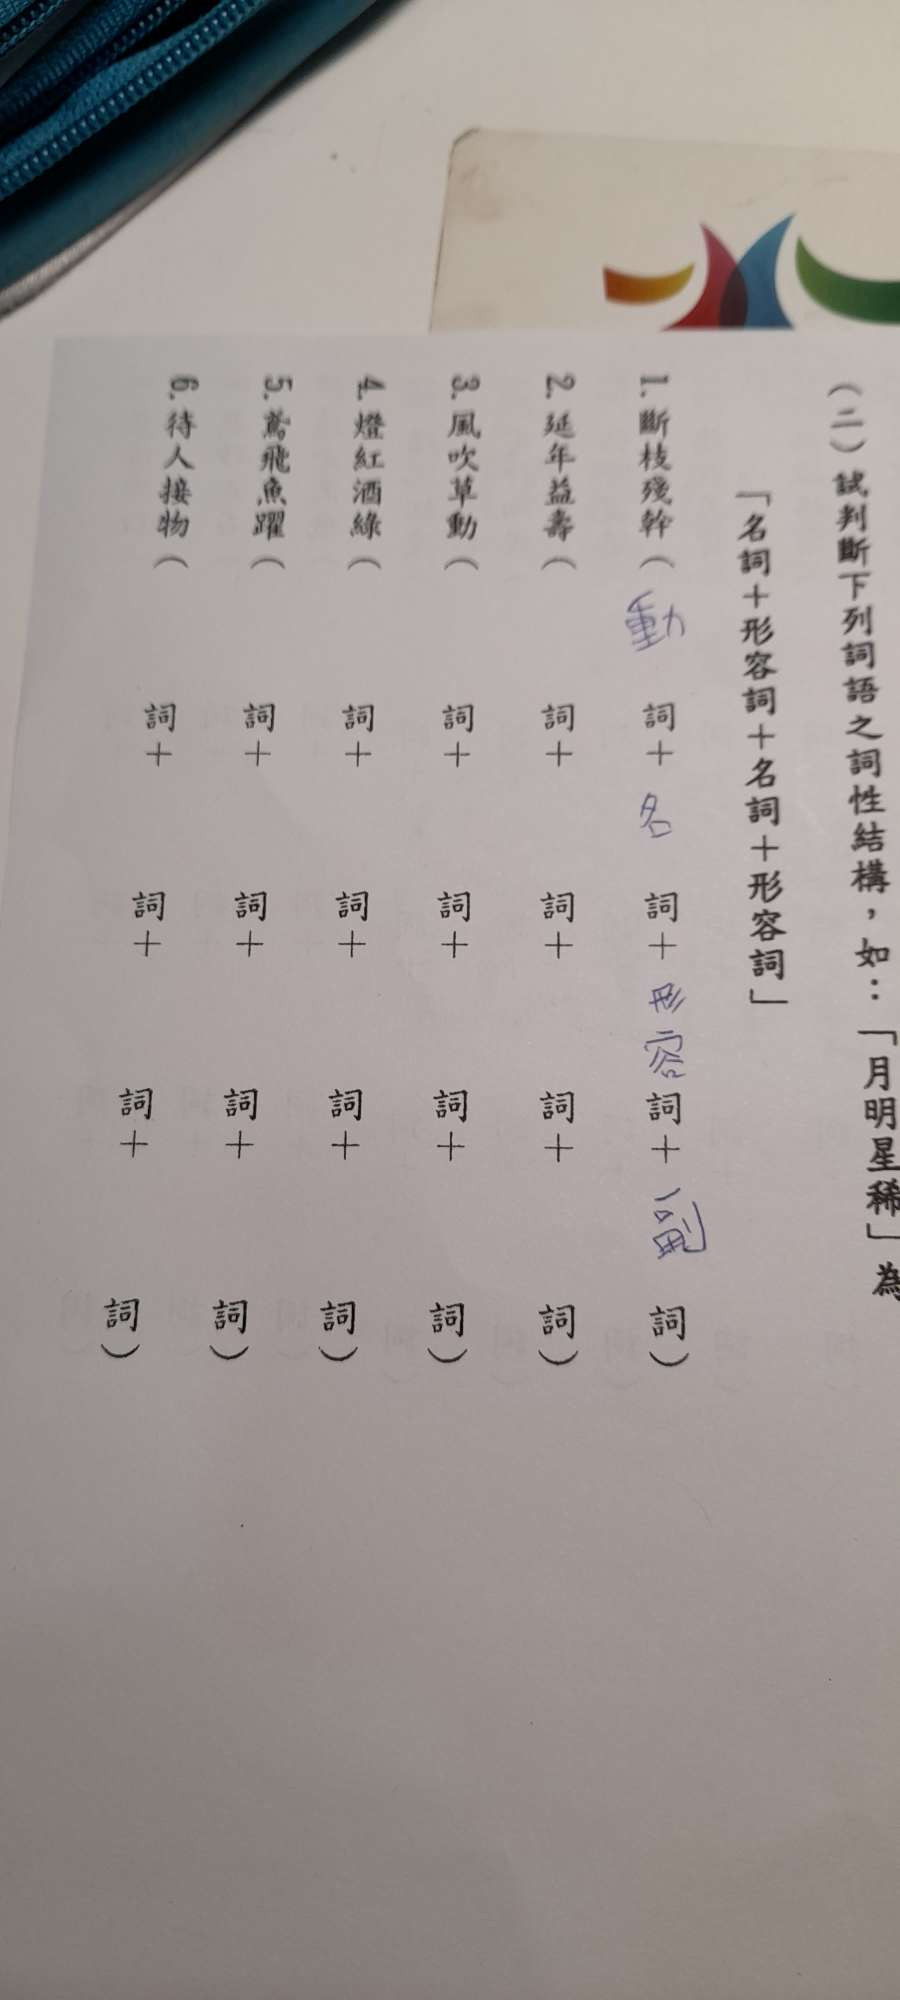 （二）試判斷下列詞語之詞性結構，如：「月明星稀」為
「名詞＋形容詞＋名詞＋形容詞」
1. 斷枝殘幹（動詞＋名詞＋形容詞＋副詞）
2. 延年益壽（　詞＋　詞＋　詞＋　詞）
3. 風吹草動（　詞＋　詞＋　詞＋　詞）
4. 燈紅酒綠（　詞＋　詞＋　詞＋　詞）
5. 鳶飛魚躍（　詞＋　詞＋　詞＋　詞）
6. 待人接物（　詞＋　詞＋　詞＋　詞）